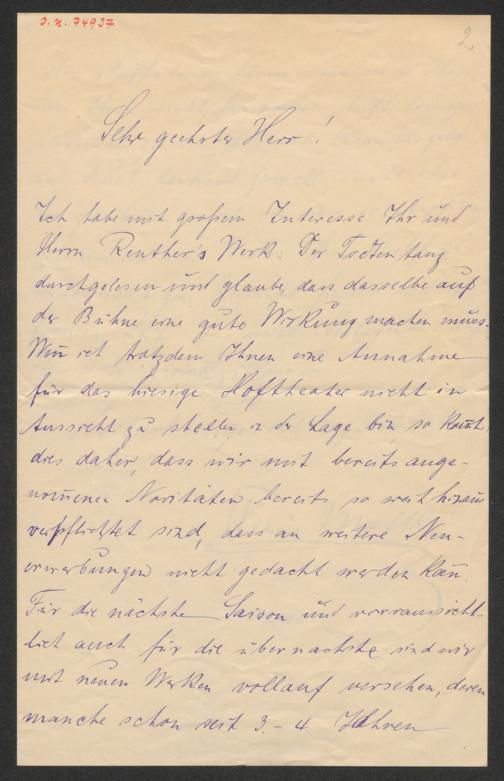 J.N. 74937
2
Sehr geehrter Herr!
Ich habe mit großem Interesse Ihr und
Herrn Reuther's Werk: Der Todtentanz
durchgelesen und glaube, dass dasselbe auf
der Bühne eine gute Wirkung machen muss.
Weñ ich trotzdem Ihnen eine Annahme
für das hiesige Hoftheater nicht in
Aussicht zu stellen in der Lage bin so kom̄t
dies daher, dass wir mit bereits ange-
nom̄enen Novitäten bereits so weit hinaus
verpflichtet sind, dass an weitere Neu-
erwerbungen nicht gedacht werden kañ.
Für die nächste Saison und vorraussicht-
lich auch für die übernächste sind wir
mit neuen Werken vollauf versehen, deren
manche schon seit 3.-4. Jahren